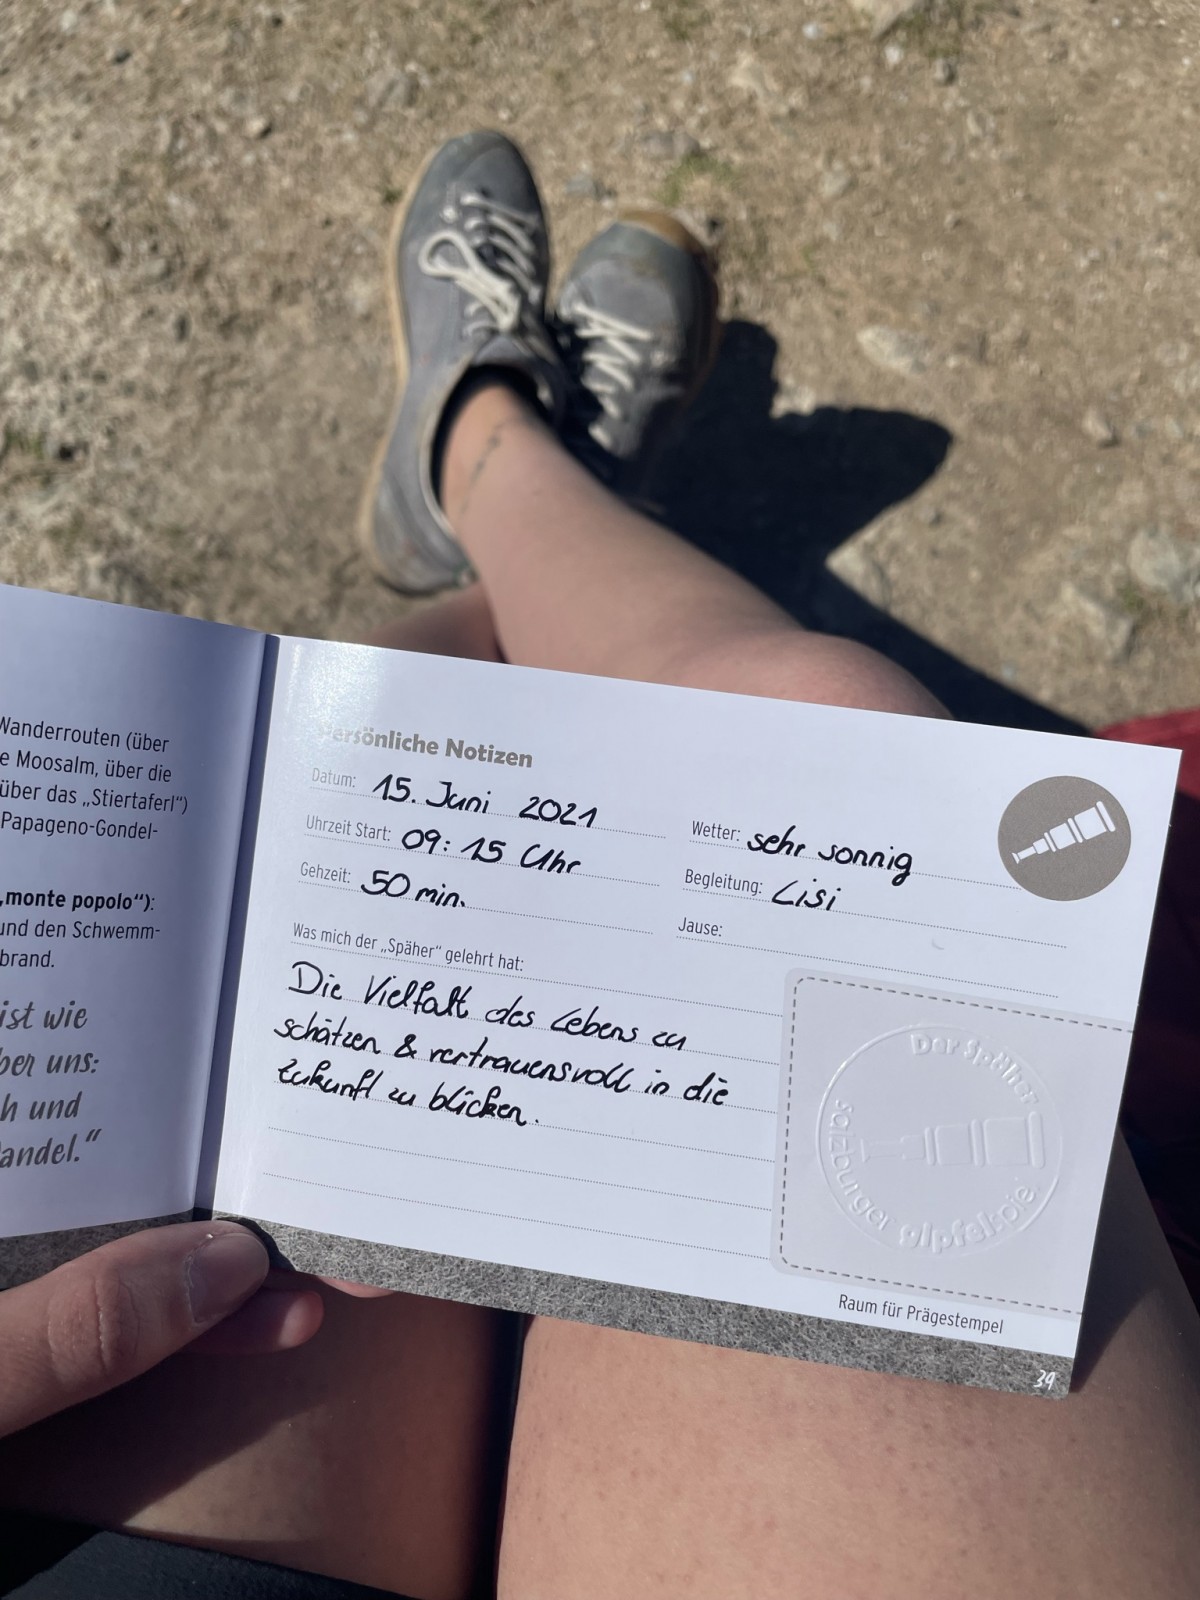 Wanderrouten (über
e Moosalm, über die
über das „Stiertaferl“)
Papageno-Gondel-
„monte popolo“):
und den Schwemm-
brand.
ist wie
ber uns:
h und
andel.“
Persönliche Notizen
Datum: 15. Juni 2021
Uhrzeit Start: 09:15 Uhr
Gehzeit: 50 min.
Wetter: sehr sonnig
Begleitung: Lisi
Jause:
Was mich der „Späher“ gelehrt hat:
Die Vielfalt des Lebens zu
schätzen & vertrauensvoll in die
Zukunft zu blicken.
Der Späher
salzburger gipfelspiel
Raum für Prägestempel
39